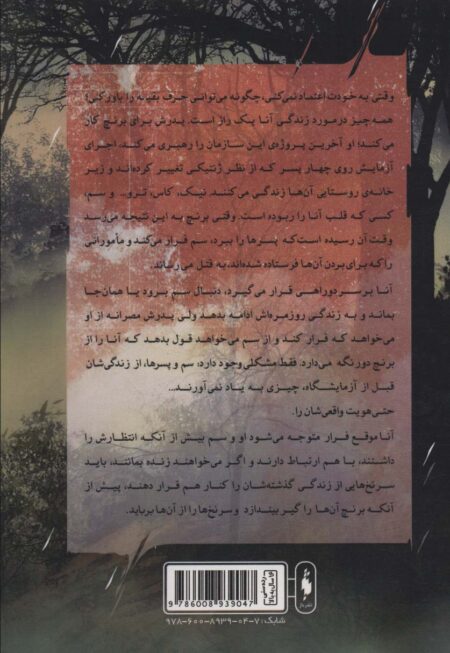 وقتی به خودت اعتماد نمی‌کنی، چگونه می‌توانی حرف بقیه را باور کنی؟
همه‌چیز درمورد زندگی آنا یک راز است. پدرش برای برنچ کار
می‌کند؛ او آخرین پروژه‌ی این سازمان را رهبری می‌کند، اجرای
آزمایش روی چهار پسر که از نظر ژنتیکی تغییر کرده‌اند و زیر
خانه‌ی روستایی آن‌ها زندگی می‌کنند. نیک، کاس، ترو... و سم،
کسی که قلب آنا را ربوده است. وقتی برنچ به این نتیجه می‌رسد
وقت آن رسیده است که پسرها را ببرد، سم فرار می‌کند و مأمورانی
را که برای بردن آن‌ها فرستاده شده‌اند، به قتل می‌رساند.
آنا بر سر دوراهی قرار می‌گیرد، دنبال سم برود یا همان‌جا
بماند و به زندگی روزمره‌اش ادامه بدهد ولی پدرش مصرانه از او
می‌خواهد که فرار کند و از سم می‌خواهد قول بدهد که آنا را از
برنچ دور نگه می‌دارد. فقط مشکلی وجود دارد: سم و پسرها، از زندگی‌شان
قبل از آزمایشگاه، چیزی به یاد نمی‌آورند...
حتی هویت واقعی‌شان را.
آنا موقع فرار متوجه می‌شود او و سم بیش از آنکه انتظارش را
داشتند، با هم ارتباط دارند و اگر می‌خواهند زنده بمانند، باید
سرنخ‌هایی از زندگی گذشته‌شان را کنار هم قرار دهند، پیش از
آنکه برنچ آن‌ها را گیر بیندازد و سرنخ‌ها را از آن‌ها برباید.
رده‌سنی
۱۶ سال به بالا
9 786008 939047
شابک: ۷-۰۴-۸۹۳۹-۶۰۰-۹۷۸